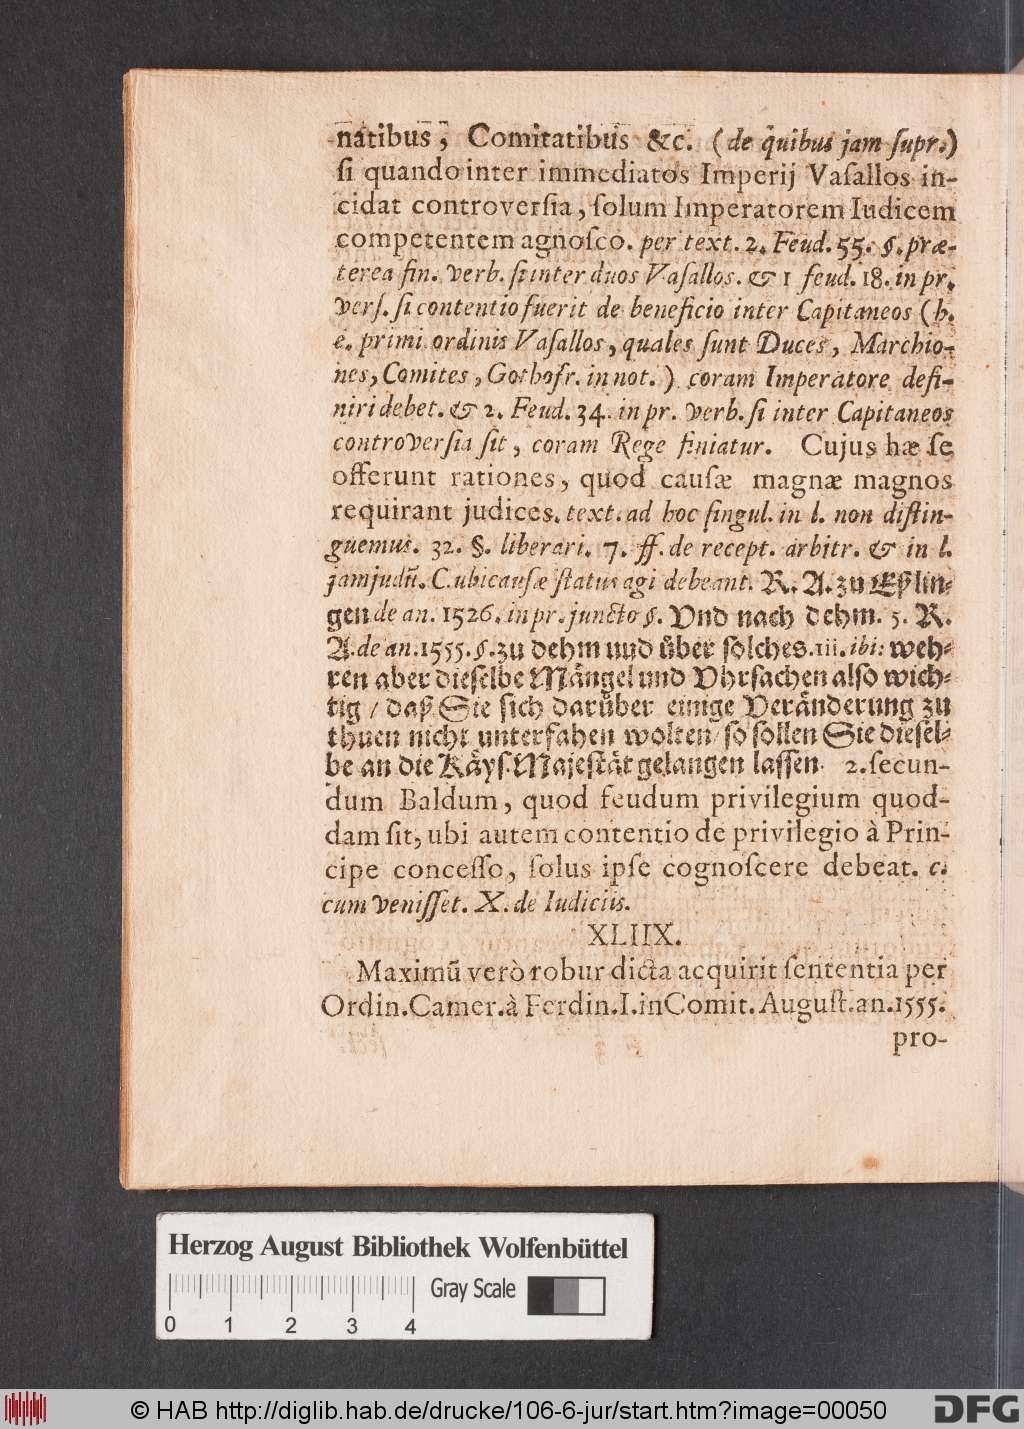 natibus, Comitatibus &c. (de quibus jam supr.)
ſi quando inter immediatos Imperij Vaſallos in-
cidat controverſia, ſolum Imperatorem Iudicem
competentem agnoſco. per text. 2. Feud. 55. §. præ-
terea fin. verb. ſi inter duos Vaſallos. & 1 feud. 18. in pr.
verſ. ſi contentio fuerit de beneficio inter Capitaneos (h.
e. primi ordinis Vaſallos, quales ſunt Duces, Marchio-
nes, Comites, Gothofr. in not.) coram Imperatore defi-
niri debet. & 2. Feud. 34. in pr. verb. ſi inter Capitaneos
controverſia ſit, coram Rege finiatur. Cujus hæ ſe
offerunt rationes, quod cauſæ magnæ magnos
requirant judices. text. ad hoc ſingul. in l. non diſtin-
guemus. 32. §. liberari. 7. ff. de recept. arbitr. & in l.
jam judũ. C. ubi cauſæ ſtatus agi debeant. R. A. zu Eßlin-
gen de an. 1526. in pr. juncto §. Vnd nach dehm. 5. R.
A. de an. 1555. §. zu dehm und über ſolches. 111. ibi: weh-
ren aber dieſelbe Mängel und Vhrſachen alſo wich-
tig / daß Sie ſich darüber einige Veränderung zu
thuen nicht unterfahen wolten / ſo ſollen Sie dieſel-
be an die Käyſ. Majeſtät gelangen laſſen. 2. ſecun-
dum Baldum, quod feudum privilegium quod-
dam ſit, ubi autem contentio de privilegio à Prin-
cipe conceſſo, ſolus ipſe cognoſcere debeat. c.
cum veniſſet. X. de Iudiciis.
XLIIX.
Maximũ verò robur dicta acquirit ſententia per
Ordin. Camer. à Ferdin. I. in Comit. Auguſt. an. 1555.
pro-
Herzog August Bibliothek Wolfenbüttel
Gray Scale
0 1 2 3 4
© HAB http://diglib.hab.de/drucke/106-6-jur/start.htm?image=00050
DFG